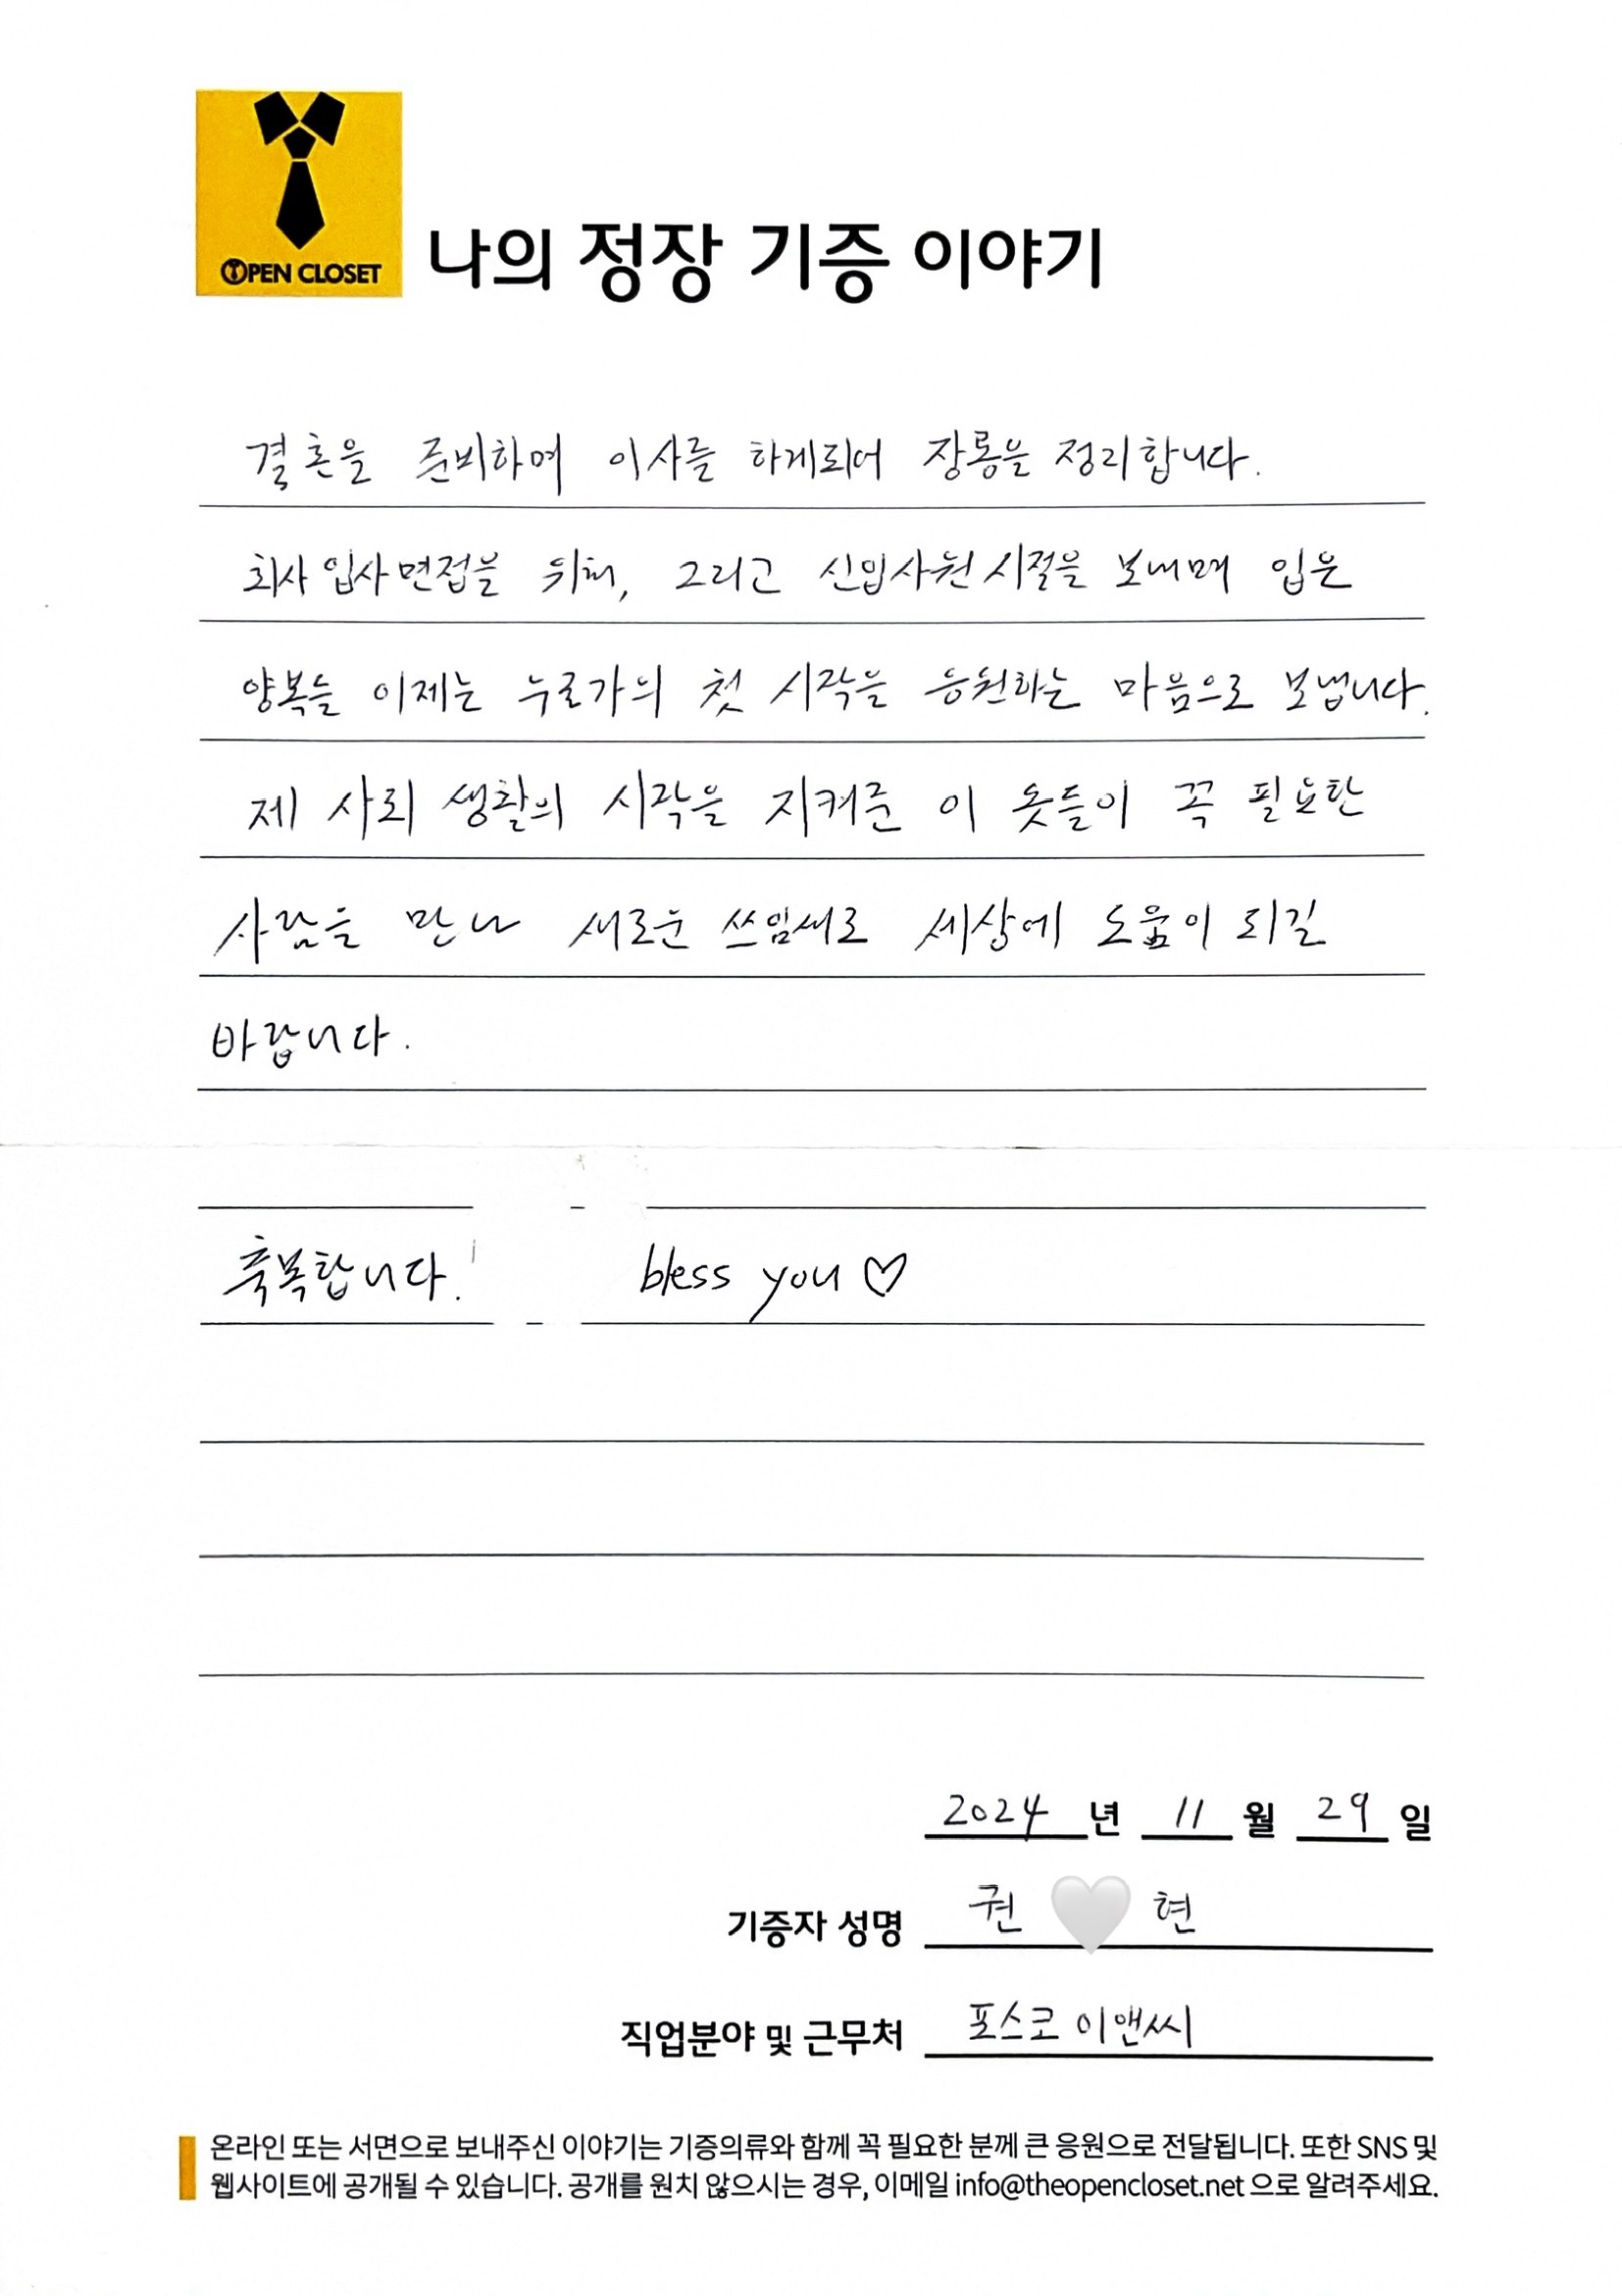 OPEN CLOSET
나의 정장 기증 이야기
결혼을 준비하며 이사를 하게되어 장롱을 정리합니다.
회사 입사 면접을 위해, 그리고 신입사원 시절을 보내며 입은
양복들 이제는 누군가의 첫 시작을 응원하는 마음으로 보냅니다.
제 사회 생활의 시작을 지켜준 이 옷들이 꼭 필요한
사람을 만나 새로운 쓰임새로 세상에 도움이 되길
바랍니다.
축복합니다. bless you ♡
2024 년 11 월 29 일
기증자 성명 권 현
직업분야 및 근무처 포스코 이앤씨
온라인 또는 서면으로 보내주신 이야기는 기증의류와 함께 꼭 필요한 분께 큰 응원으로 전달됩니다. 또한 SNS 및
웹사이트에 공개될 수 있습니다. 공개를 원치 않으시는 경우, 이메일 info@theopencloset.net 으로 알려주세요.